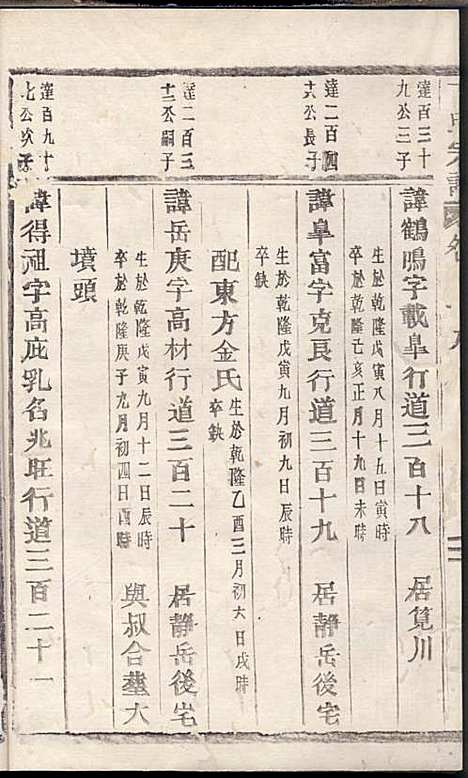 達百三十
九公三子
諱鶴鳴字載皐行道三百十八 居筧川
生於乾隆戊寅八月十五日寅時
卒於乾隆己亥正月十九日未時
達二百四
十六公長子
諱皐富字克良行道三百十九 居靜岳後宅
生於乾隆戊寅九月初九日辰時
卒缺
配東方金氏
生於乾隆乙酉三月初六日戌時
卒缺
達二百三
十二公嗣子
諱岳庚字高材行道三百二十 居靜岳後宅
生於乾隆戊寅九月十二日辰時
卒於乾隆庚子九月初四日酉時
與叔合塟大
墳頭
達百九十
七公次子
諱得祖字高庇乳名兆旺行道三百二十一